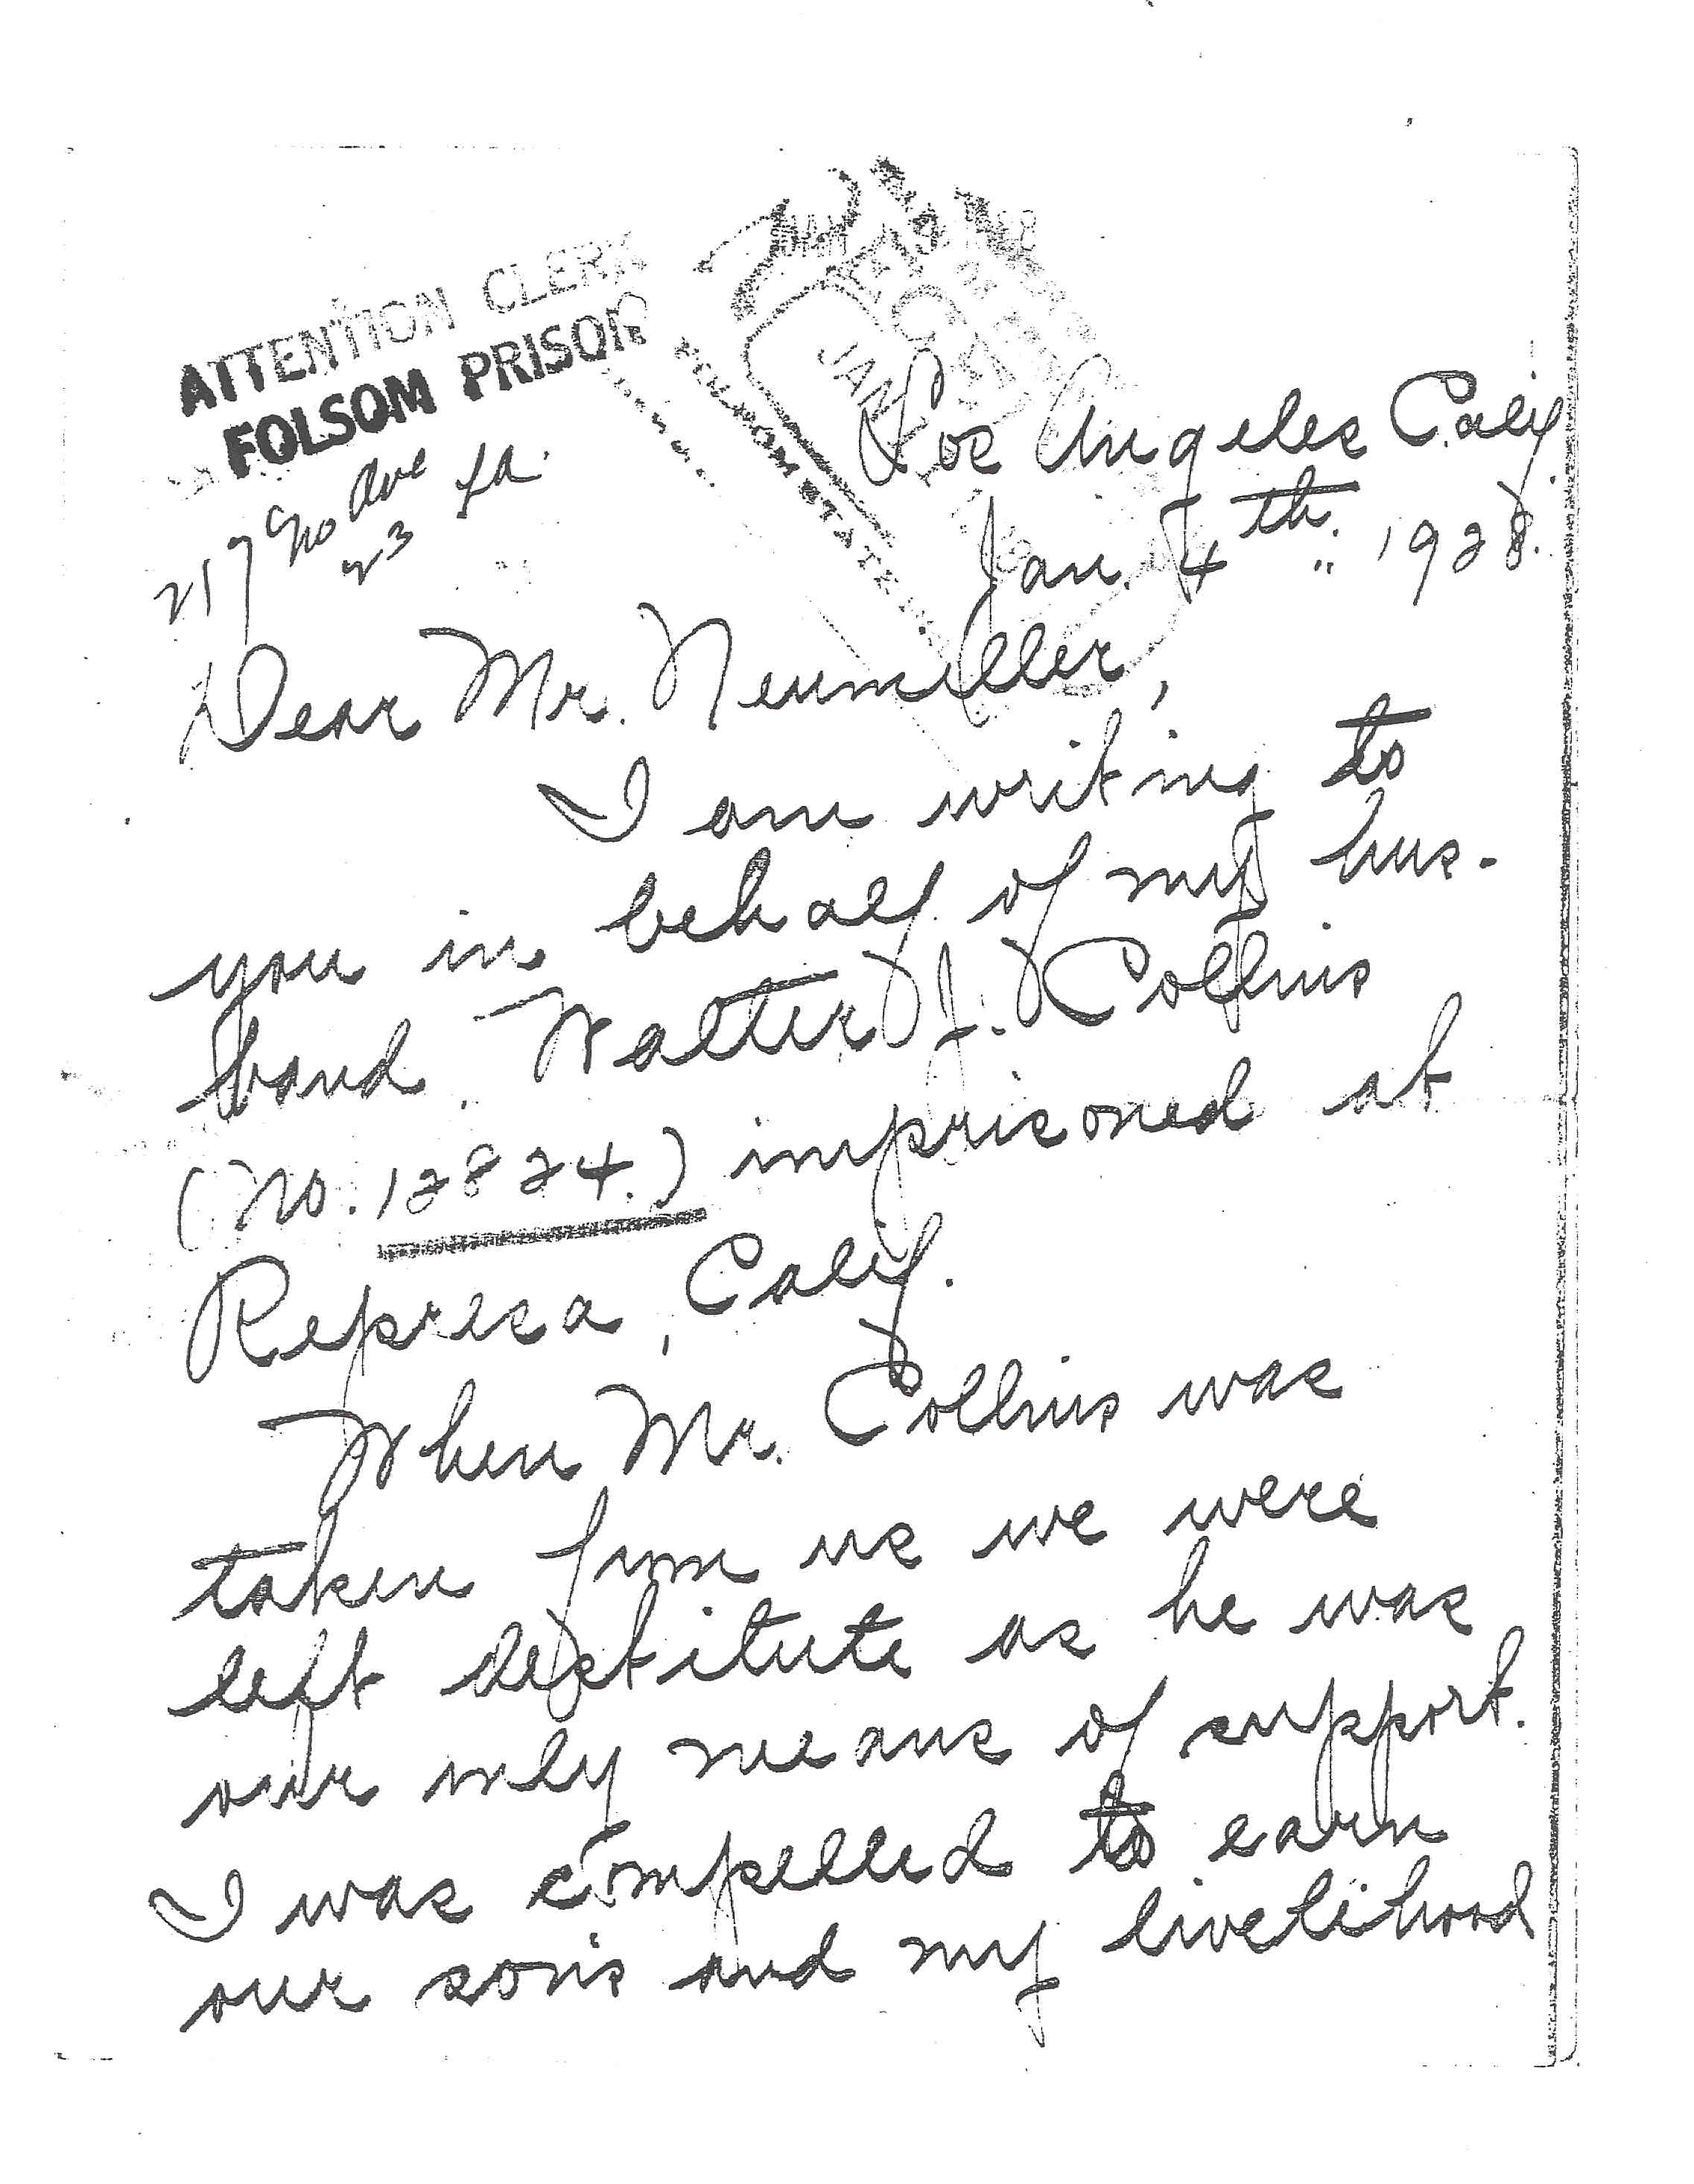 ATTENTION CLERK
FOLSOM PRISON
217 No Ave
23 LA.
JAN
Los Angeles Calif.
Jan. 4th. 1928.
Dear Mr. Neumiller,
I am writing to
you in behalf of my hus-
band, Walter J. Collins
(No. 12824.) imprisoned at
Represa, Calif.
When Mr. Collins was
taken from us we were
left destitute as he was
our only means of support.
I was compelled to earn
our son's and my livelihood